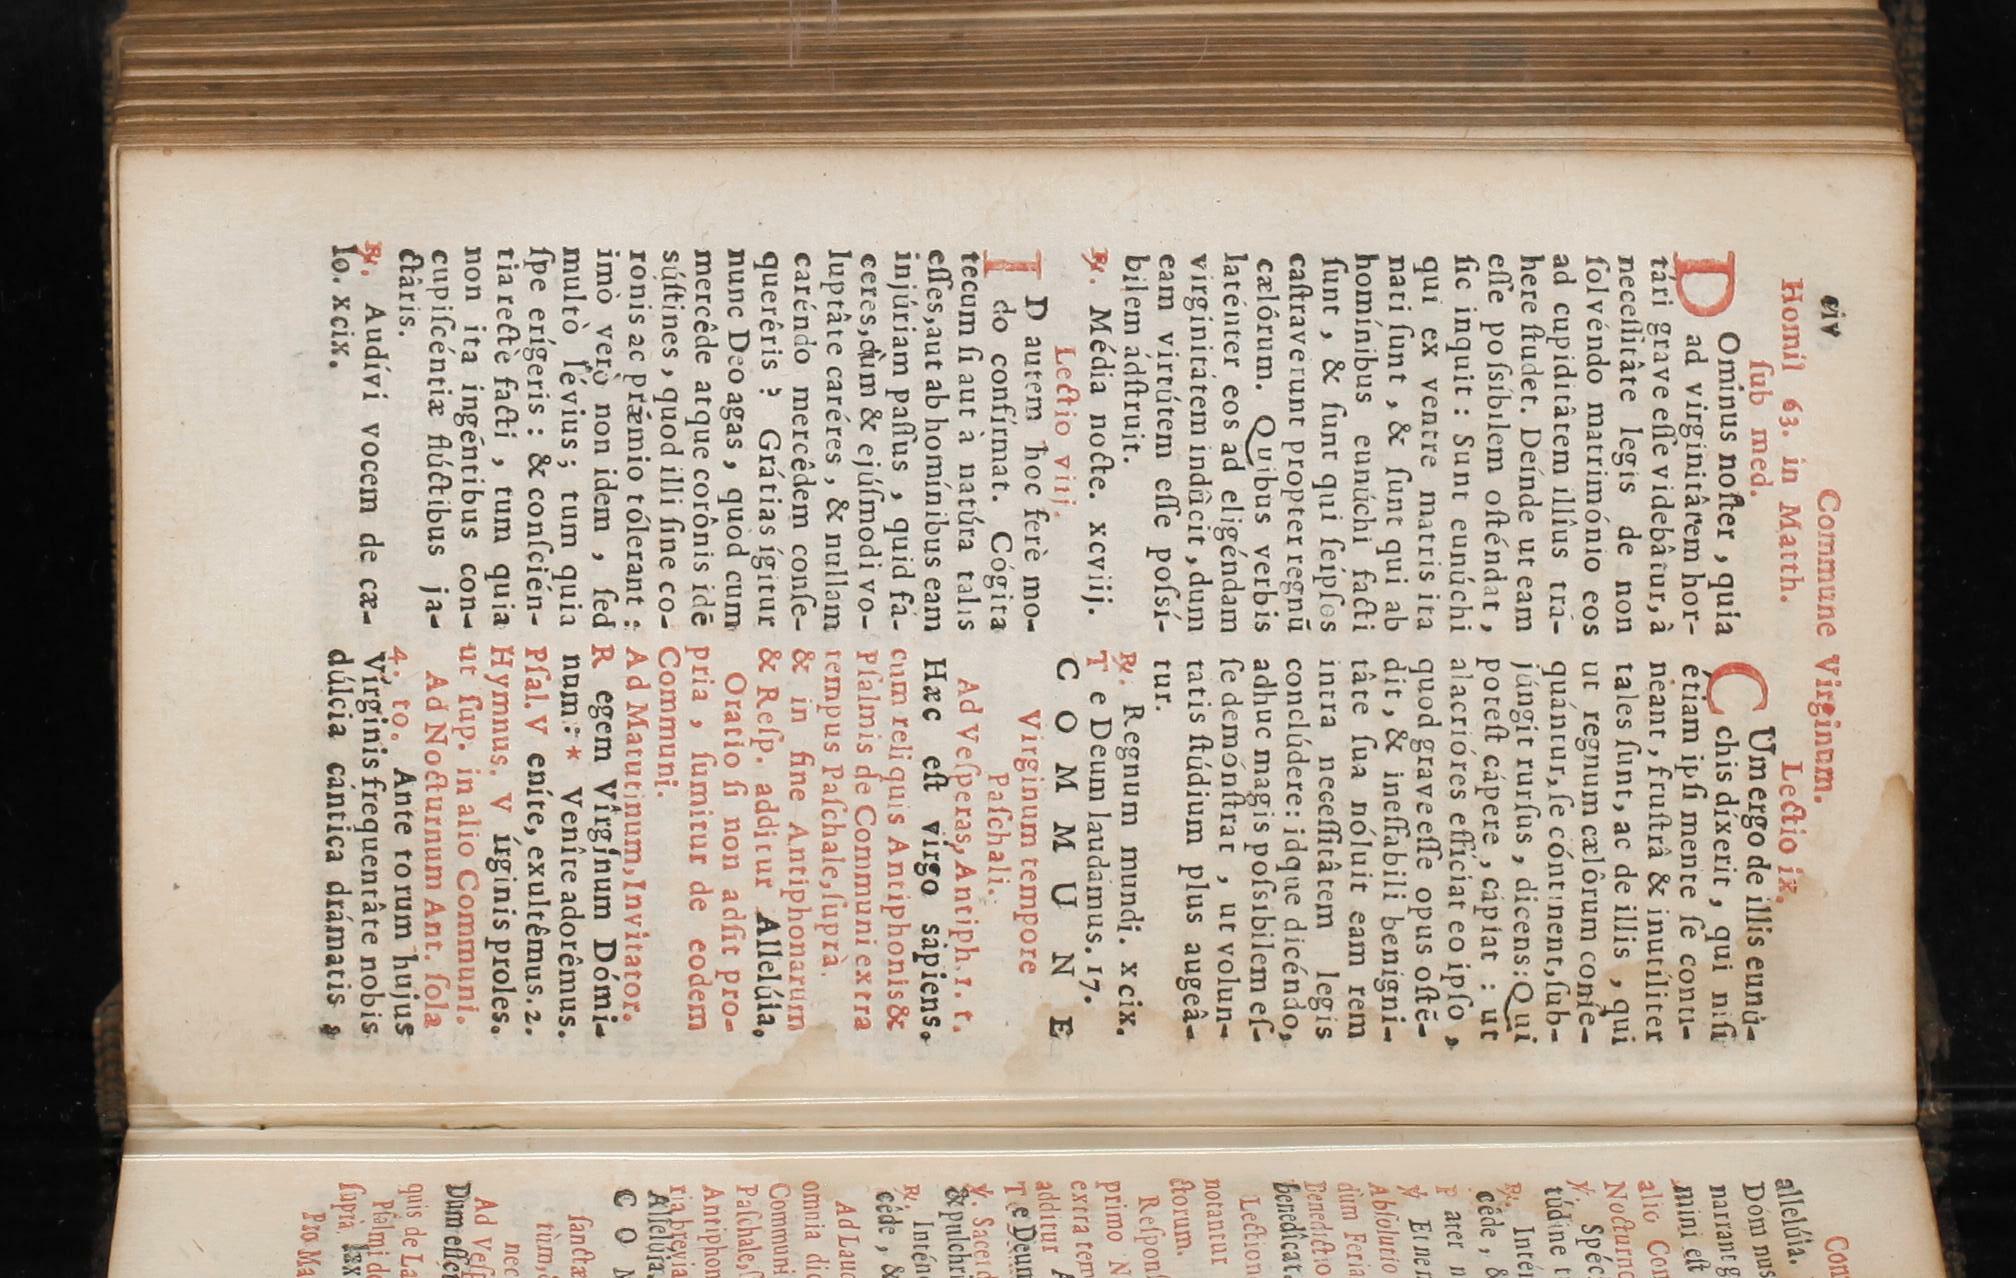 civ
Commune Virginum.
Homil 63. in Matth.
ſub med.
DOminus noſter, quia
ad virginitâtem hor-
tári grave eſſe videbâtur, à
neceſſitâte legis de non
ſolvéndo matrimónio eos
ad cupiditâtem illîus trá-
here ſtudet. Deínde ut eam
eſſe poſsibilem oſténdat,
ſic inquit: Sunt eunúchi
qui ex ventre matris ita
nati ſunt, & ſunt qui ab
homínibus eunúchi facti
ſunt, & ſunt qui ſeipſos
caſtraverunt propter regnū
cælôrum. Quibus verbis
laténter eos ad eligéndam
virginitátem indûcit, dum
eam virtútem eſſe poſsí-
bilem ádſtruit.
℟. Média nocte. xcviij.
Lectio viij.
ID autem hoc ferè mo-
do confírmat. Cógita
tecum ſi aut à natúra talis
eſſes, aut ab homínibus eam
injúriam paſſus, quid fá-
ceres, dùm & ejúſmodi vo-
luptâte caréres, & nullam
caréndo mercêdem conſe-
querêris? Grátias ígitur
nunc Deo agas, quod cum
mercêde atque corônis idē
súſtines, quod illi ſine co-
ronis ac prǽmio tólerant:
imò verò non idem, ſed
multò lévius; tum quia
ſpe erígeris: & conſcién-
tia rectè facti, tum quia
non ita ingéntibus con-
cupiſcéntiæ flúctibus ja-
ctâris.
℟. Audívi vocem de cæ-
lo. xcix.
Lectio ix.
CUm ergo de illis eunú-
chis díxerit, qui niſi
étiam ipſi mente ſe conti-
neant, fruſtrâ & inutíliter
tales ſunt, ac de illis, qui
ut regnum cælôrum conſe-
quántur, ſe cóntinent, ſub-
júngit rurſus, dicens: Qui
poteſt cápere, cápiat: ut
alacrióres effíciat eo ipſo,
quod grave eſſe opus oſtē-
dit, & ineffabili benigni-
tâte ſua nóluit eam rem
intra neceſſitâtem legis
conclúdere: idque dicéndo,
adhuc magis poſsibilem eſ-
ſe demónſtrat, ut volun-
tatis ſtúdium plus augeâ-
tur.
℟. Regnum mundi. xcix.
Te Deum laudamus. 17.
COMMUNE
Virginum tempore
Paſchali.
Ad Veſperas, Antiph. 1. t.
Hæc eſt virgo sapiens.
cum reliquis Antiphonis &
Pſalmis de Communi extra
tempus Paſchale, ſuprà.
& in fine Antiphonarum
& Reſp. additur Allelúia.
Oratio ſi non adſit pro-
pria, ſumitur de eodem
Communi.
Ad Matutinum, Invitator.
Regem Vírginum Dómi-
num: * Venîte adorêmus.
Pſal. Veníte, exultêmus. 2.
Hymnus. Vírginis proles.
ut ſup. in alio Communi.
Ad Nocturnum Ant. ſola
4. to. Ante torum hujus
Vírginis frequentâte nobis
dúlcia cántica drámatis,
allelúia.
Dóm nus
narrant g
mini eſt
alio Con
Nocturno
℣. Spéc
túdine t
℟. Intén
céde, &
Pater n
℣. Et ne n
Abſolutio
dùm Feria
Benedictio
benedicat.
Lection
notantur
ctorum.
Reſponſ
primo N
extra tem
additur A
Te Deum
℣. Sacerd
& pulchri
℟. Intén
céde, &
Ad Laud
omnia dic
Communi
Paſchale, ſ
Antiphon
ria brevia
Allelúia.
COM
ſanctæ
tùm,
nec
Ad Veſ
Dum eſſet
quis de La
Pſalmi de
ſuprà.
Pro Ma